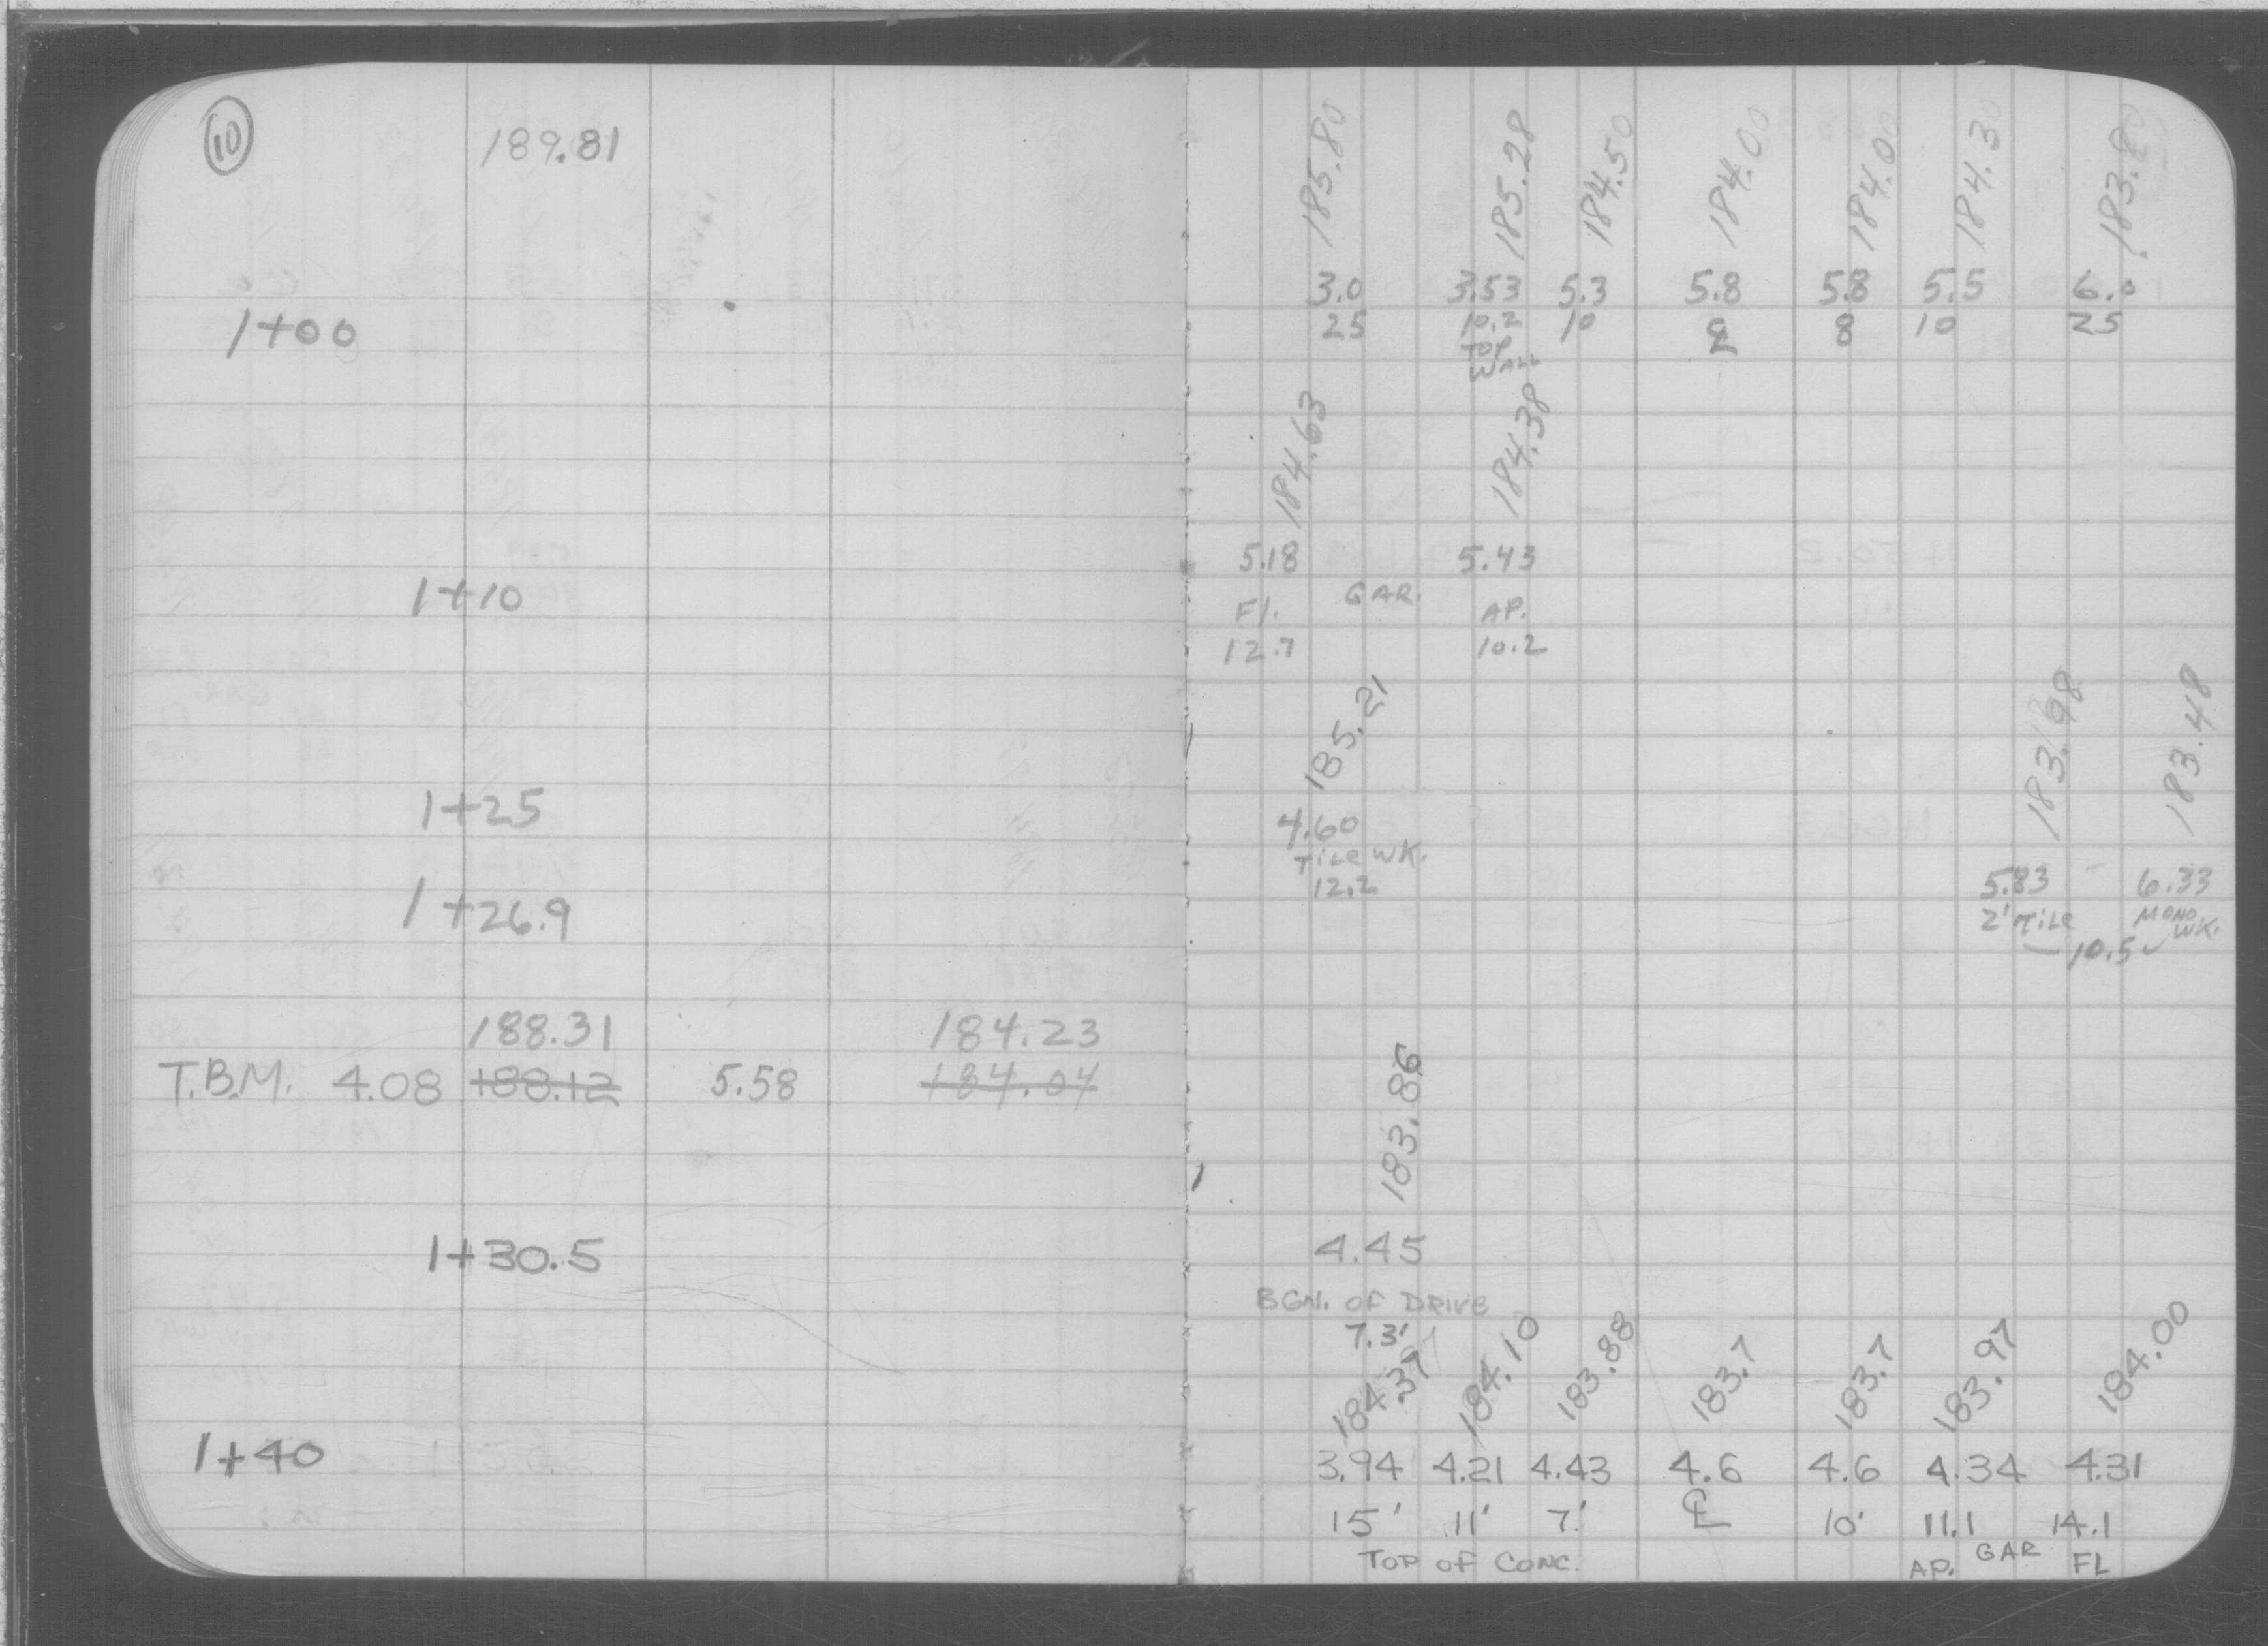 10
189.81
185.80 185.28 184.50 184.00 184.0 184.30
3.0 3.53 5.3 5.8 5.8 5.5 6.0
1+00 25 10.2 10 ℄ 8 10 25
TOP
WALL
184.63 184.38
5.18 5.43
1+10 GAR.
Fl. AP.
12.7 10.2
185.21 183.98 183.48
1+25 4.60
TILE WK.
12.2
1+26.9 5.83 6.33
2' TILE MONO
WK.
10.5
188.31 184.23
T.B.M. 4.08 188.12 5.58 184.04
183.86
1+30.5 4.45
BGN. OF DRIVE
7.3'
184.37 184.10 183.88 183.7 183.7 183.97 184.00
1+40 3.94 4.21 4.43 4.6 4.6 4.34 4.31
15' 11' 7' ℄ 10' 11.1 14.1
TOP OF CONC. AP. GAR FL